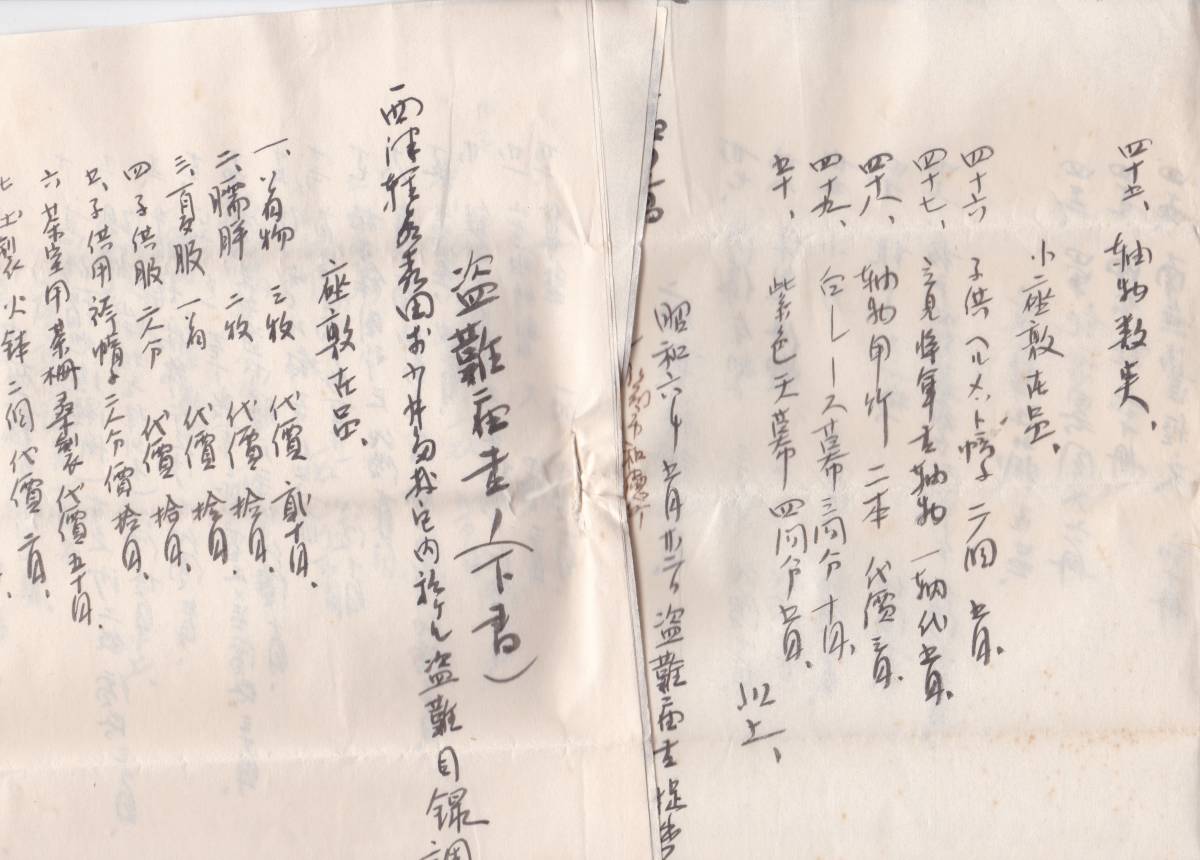 四十五、軸物数点、
小二座敷在品、
四十六 子供ヘルメット帽子 二個 五円、
四十七、 軍 軸物 一軸代五円、
四十八、 軸物用竹 二本 代價三円、
四十九、 白レース幕三間分 十円、
五十、 紫色天幕 四間分 五円、
以上、
昭和六年 五月廿二日 盗難届書提出
盗難届書(下書)
西津軽 内於ケル盗難目録調
座敷在品、
一、着物 三枚 代價 貳十円、
二、襦袢 二枚 代價 拾円、
三、夏服 一着 代價 拾円、
四 子供服 六人分 代價 拾円、
五、子供用袴帽子六人分價 拾円、
六 茶室用茶棚桑製 代價五十円、
七 土製火鉢 二個 代價 六円、